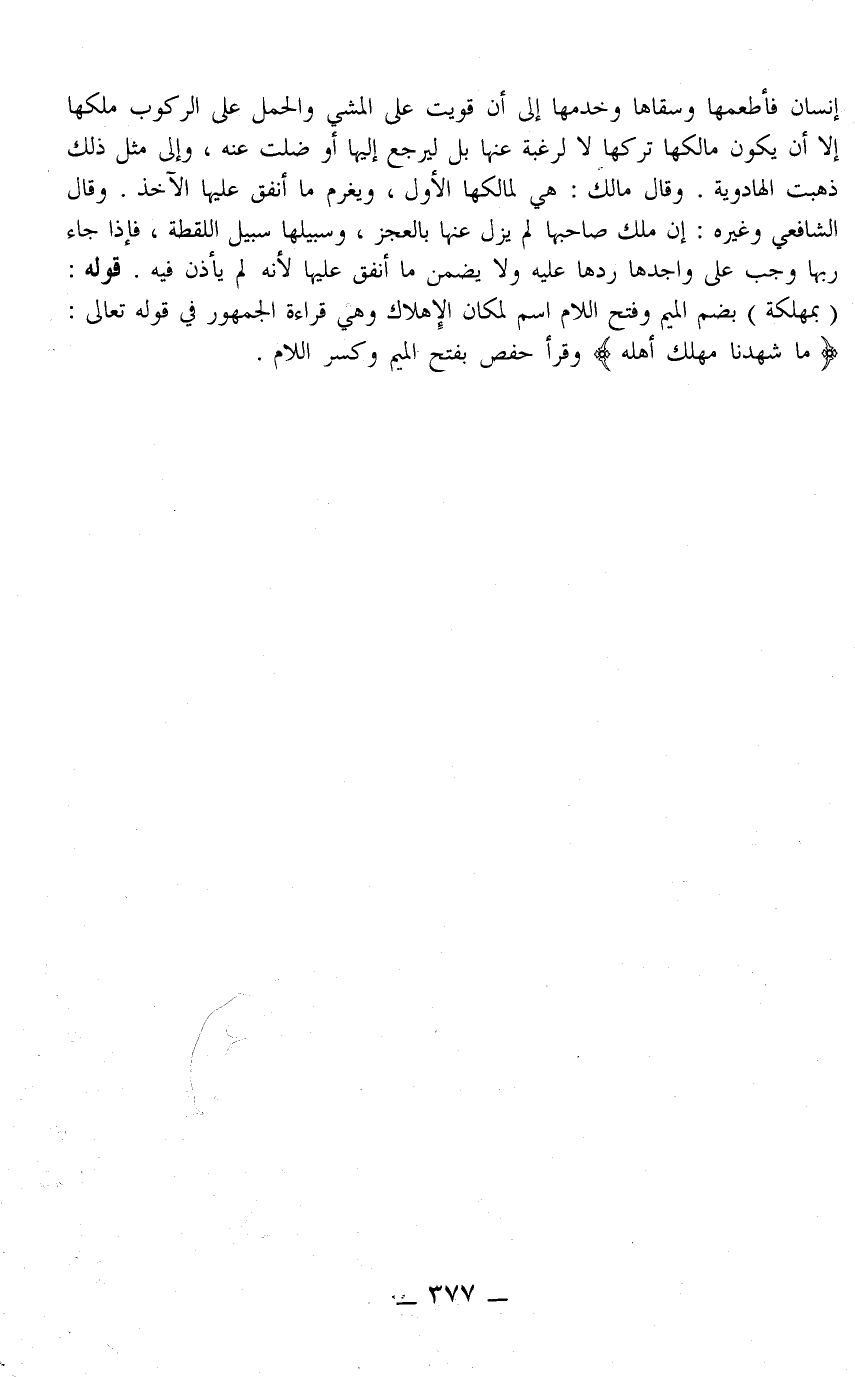 إنسان فأطعمها وسقاها وخدمها إلى أن قويت على المشي والحمل على الركوب ملكها
إلا أن يكون مالكها تركها لا لرغبة عنها بل ليرجع إليها أو ضلت عنه ، وإلى مثل ذلك
ذهبت الهادوية . وقال مالك : هي لمالكها الأول ، ويغرم ما أنفق عليها الآخذ . وقال
الشافعي وغيره : إن ملك صاحبها لم يزل عنها بالعجز ، وسبيلها سبيل اللقطة ، فإذا جاء
ربها وجب على واجدها ردها عليه ولا يضمن ما أنفق عليها لأنه لم يأذن فيه . قوله :
( بمهلكة ) بضم الميم وفتح اللام اسم لمكان الإهلاك وهي قراءة الجمهور في قوله تعالى :
﴿ ما شهدنا مهلك أهله ﴾ وقرأ حفص بفتح الميم وكسر اللام .
ــ ٣٧٧ ــ